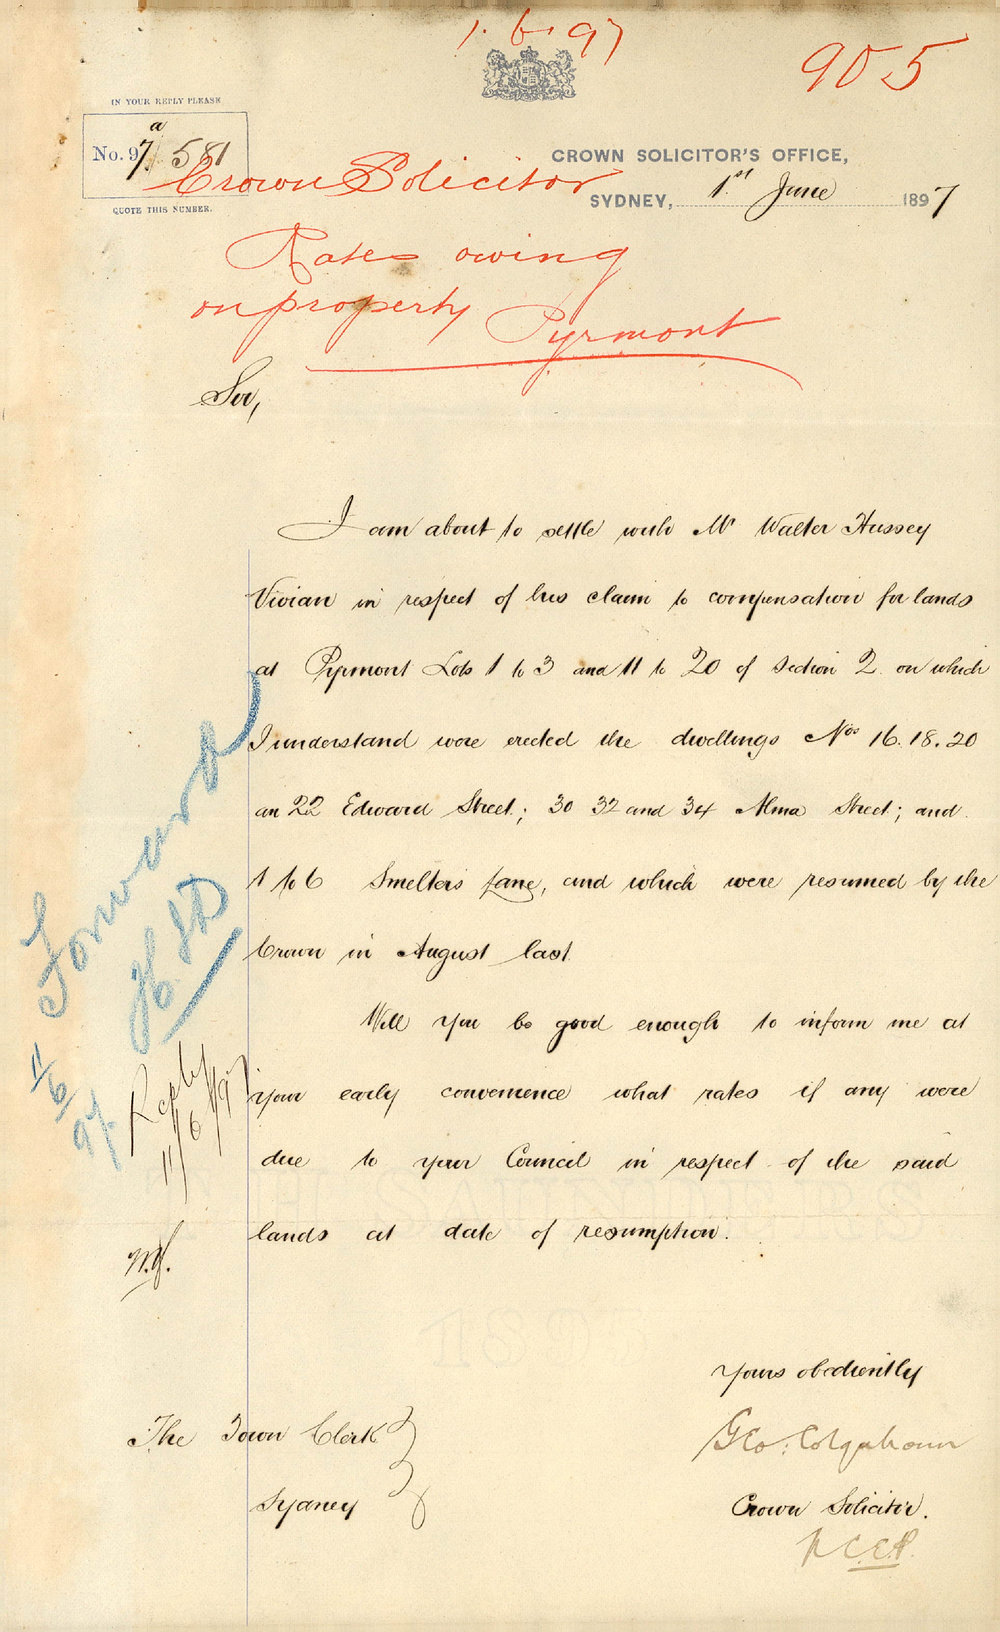 1.6.97
905
IN YOUR REPLY PLEASE
No. 97/a 581
QUOTE THIS NUMBER.
CROWN SOLICITOR'S OFFICE,
SYDNEY, 1st June 1897
Crown Solicitor
Rates owing
on property Pyrmont
Sir,
I am about to settle with Mr Walter Hussey
Vivian in respect of his claim to compensation for lands
at Pyrmont Lots 1 to 3 and 11 to 20 of Section 2 on which
I understand were erected the dwellings Nos 16. 18. 20
an 22 Edward Street; 30 32 and 34 Alma Street; and
1 to 6 Smelters Lane, and which were resumed by the
Crown in August last.
Will you be good enough to inform me at
your early convenience what rates if any were
due to your Council in respect of the said
lands at date of resumption.
Forward
1/6/97
Reply
11/6/97
Yours obediently
Geo: Colquhoun
Crown Solicitor.
The Town Clerk
Sydney